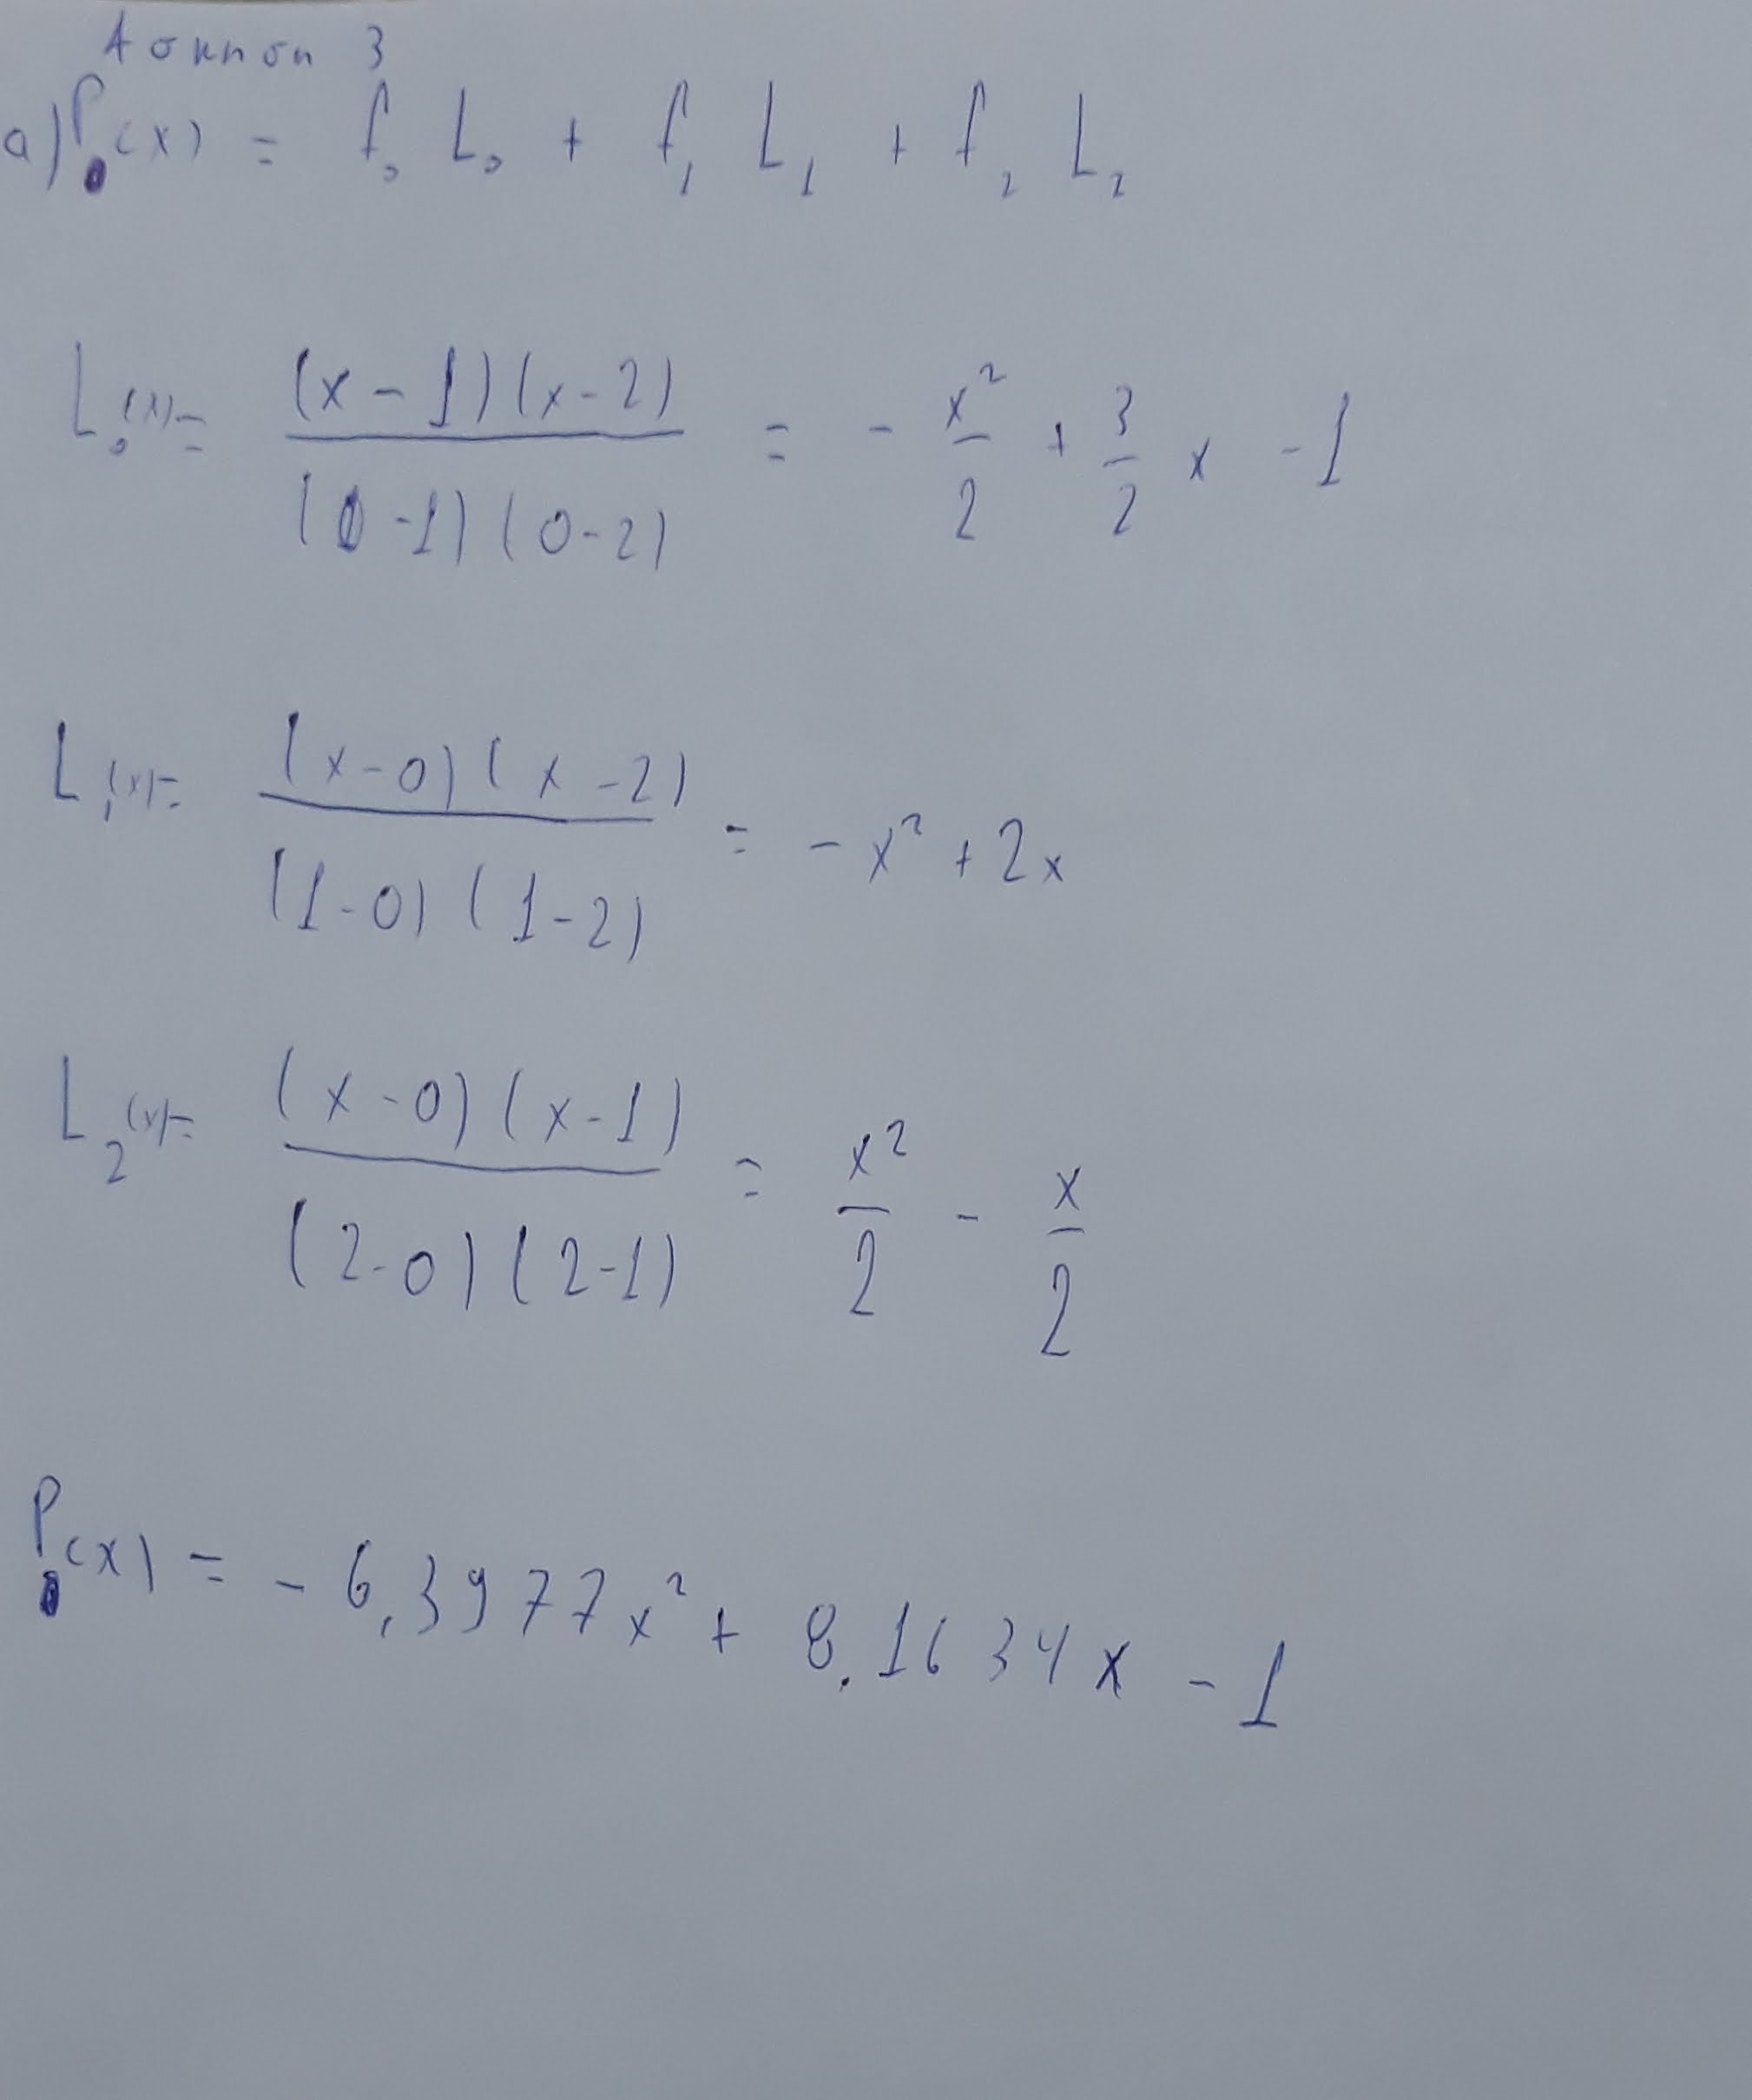 Άσκηση 3
a) P(x) = f₀ L₀ + f₁ L₁ + f₂ L₂
L₀(x) = (x-1)(x-2) / (0-1)(0-2) = - x²/2 + 3/2 x - 1
L₁(x) = (x-0)(x-2) / (1-0)(1-2) = - x² + 2x
L₂(x) = (x-0)(x-1) / (2-0)(2-1) = x²/2 - x/2
P(x) = - 6,3977x² + 8.1634x - 1